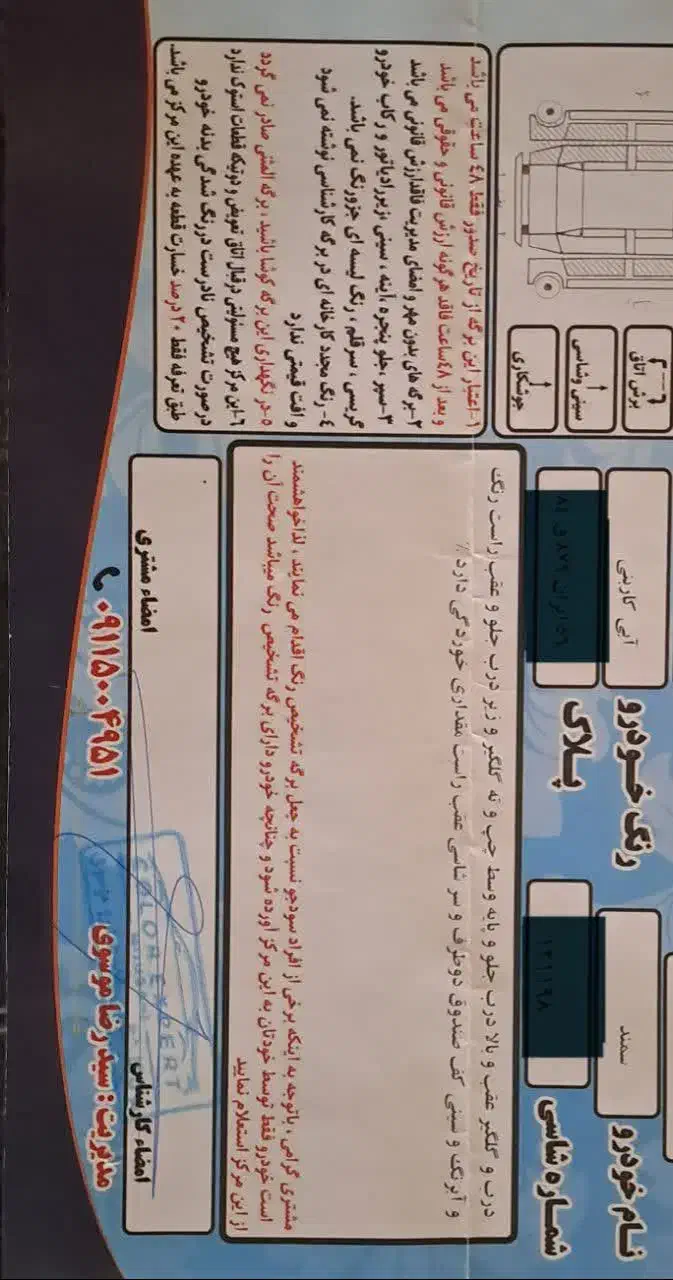 نام خودرو
سمند
رنگ خودرو
آبی کاربنی
شماره شاسی
پلاک
برش اتاق
سینی و شاسی
جوشکاری
درب و گلگیر عقب و بالا درب جلو و پایه وسط چپ و ته گلگیر و زیر درب جلو و عقب راست رنگ
و آبرنگ و سینی کف صندوق دوطرف و سر شاسی عقب راست مقداری خوردگی دارد٪
مشتری گرامی، باتوجه به اینکه برخی از افراد سودجو نسبت به جعل برگه تشخیص رنگ اقدام می نمایند، لذا خواهشمند
است خودرو فقط توسط خودتان به این مرکز آورده شود و چنانچه خودرو دارای برگه تشخیص رنگ میباشد صحت آن را
از این مرکز استعلام نمایید
۱-اعتبار این برگه از تاریخ صدور فقط ۴۸ ساعت می باشد
و بعد از ۴۸ ساعت فاقد هرگونه ارزش قانونی و حقوقی می باشد
۲-برگه های بدون مهر و امضای مدیریت فاقد ارزش قانونی می باشد
۳-سپر، جلو پنجره، آینه، سینی زیر رادیاتور و رکاب خودرو
گریسی، سرقلم، رنگ لیسه ای جزو رنگ نمی باشد.
۴- رنگ مجدد کارخانه ای در برگه کارشناسی نوشته نمی شود
و افت قیمتی ندارد
۵-در نگهداری این برگه کوشا باشید، برگه المثنی صادر نمی گردد
۶-این مرکز هیچ مسئولیتی در قبال اتاق تعویض و دوتیکه قطعات استوک ندارد
درصورت تشخیص نادرست در رنگ شدگی بدنه خودرو
طبق تعرفه فقط ۲۰ درصد خسارت قطعه به عهده این مرکز می باشد.
امضاء کارشناس
امضاء مشتری
COLOR EXPERT
مدیریت: سید رضا موسوی
۰۹۱۱۵۰۰۴۹۵۱